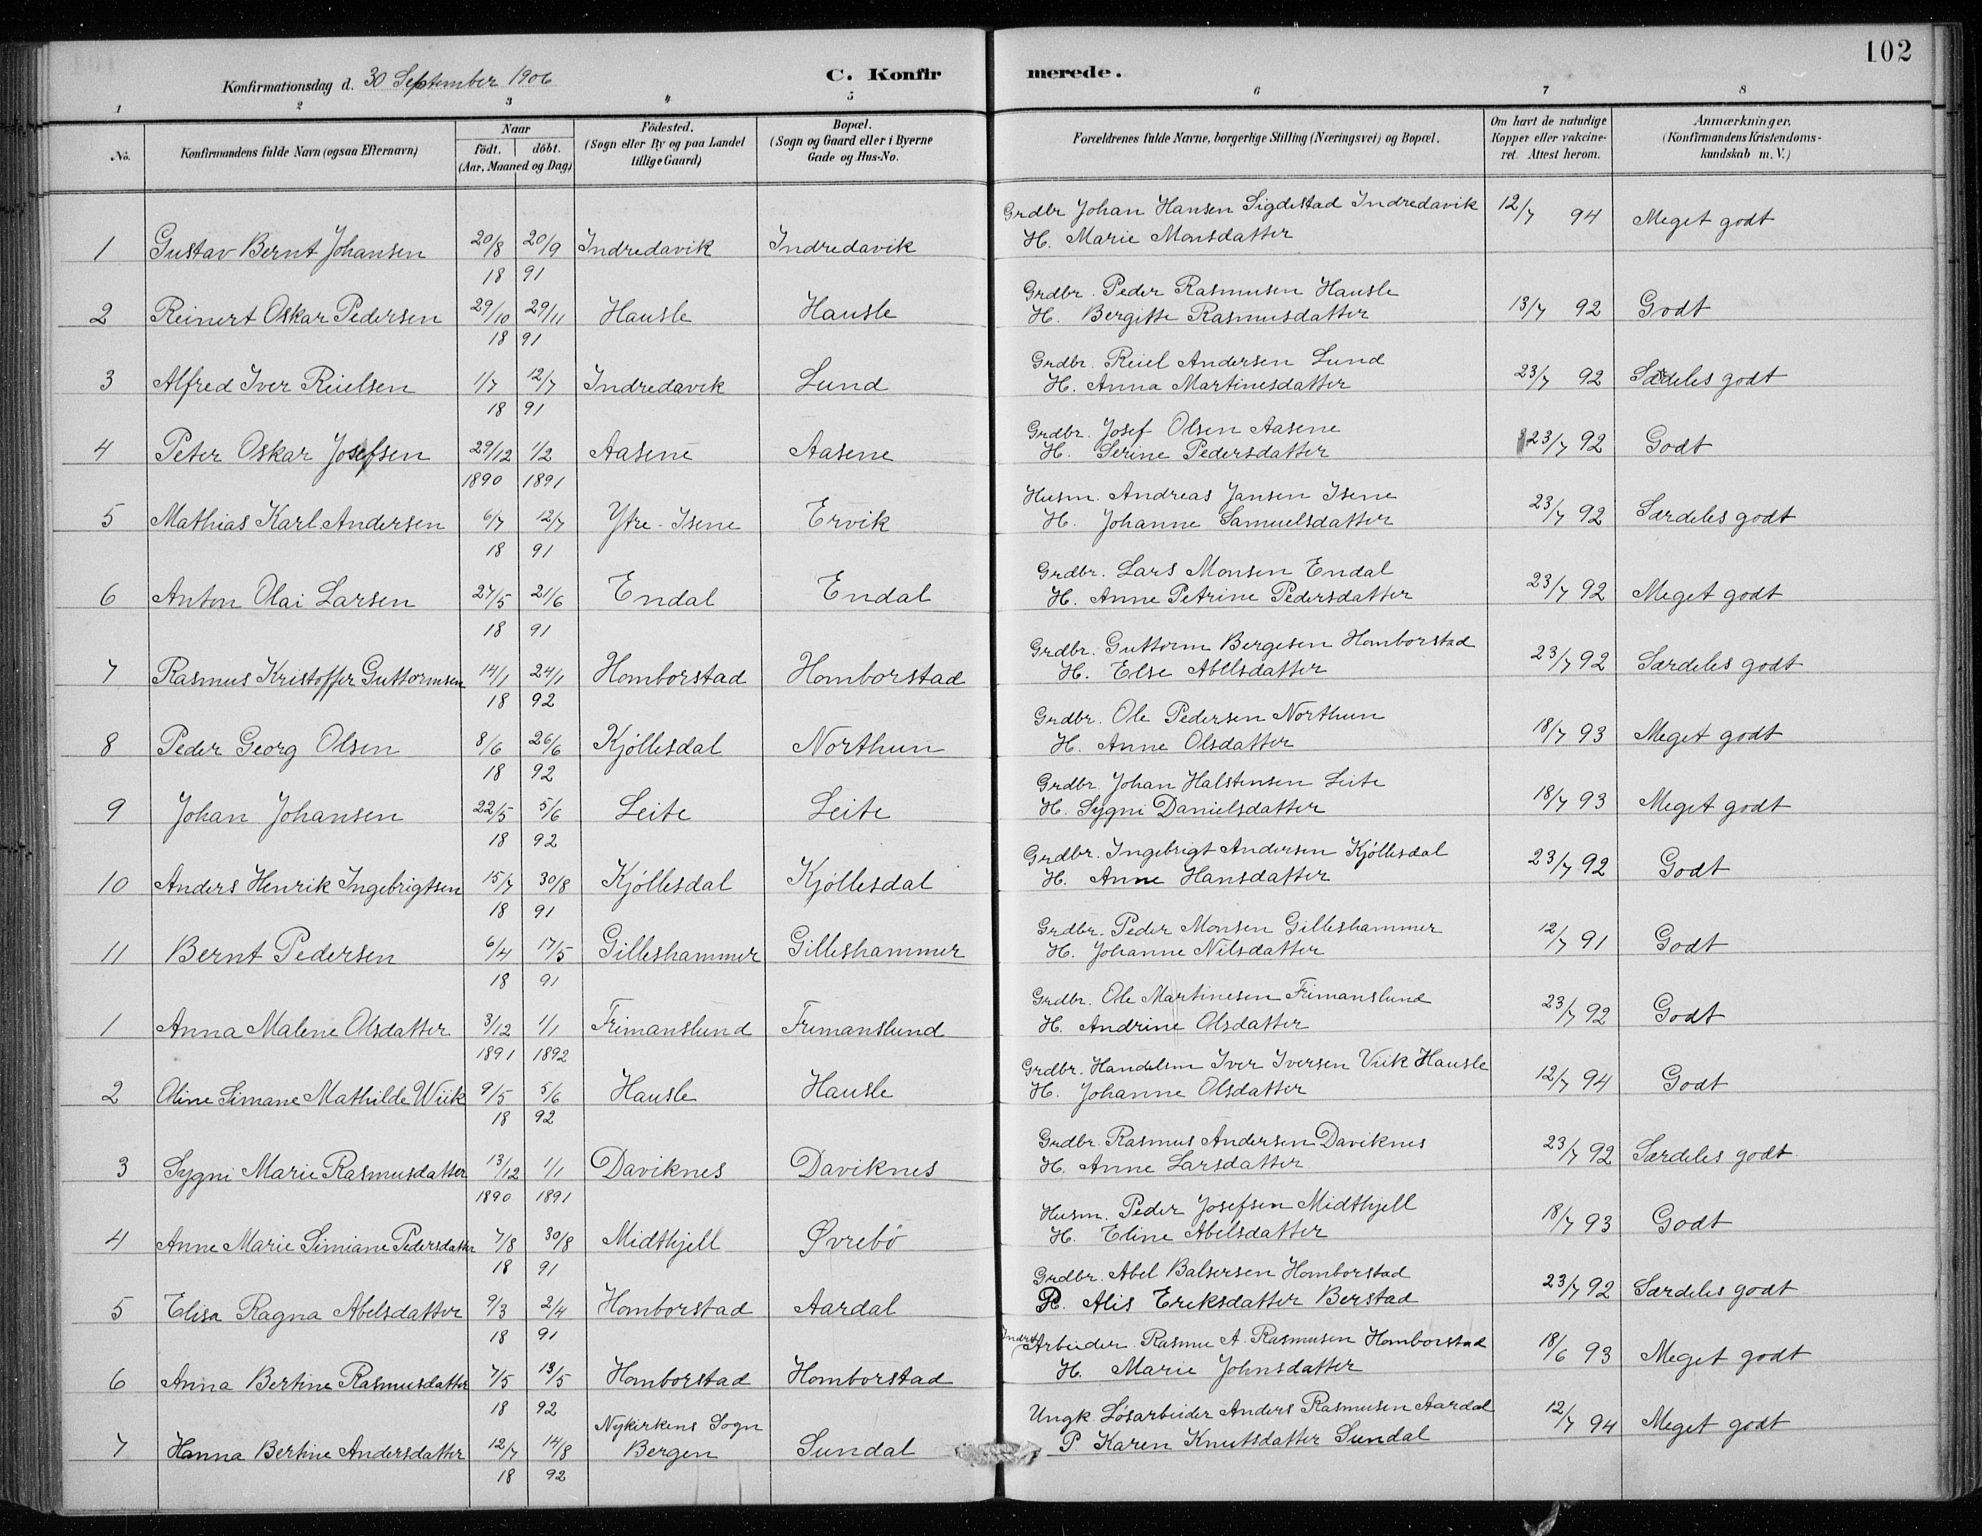 102
Konfirmationsdag d. 30 September 1906
C. Konfirmerede.
1 2 3 4 5 6 7 8
No. | Konfirmandens fulde Navn (ogsaa Efternavn) | Naar født. døbt. (Aar, Maaned og Dag) | Fødested. (Sogn eller By og paa Landet tillige Gaard) | Bopæl. (Sogn og Gaard eller i Byerne Gade og Hus-No. | Forældrenes fulde Navne, borgerlige Stilling (Næringsvei) og Bopæl. | Om havt de naturlige Kopper eller vakcineret. Attest herom. | Anmærkninger. (Konfirmandens Kristendomskundskab m. V.)
1 Gustav Bernt Johansen 20/8 20/9 1891 Indredavik Indredavik Grdbr Johan Hansen Sigdestad Indredavik H. Marie Monsdatter 12/7 94 Meget godt
2 Reinert Oskar Pedersen 29/10 29/11 1891 Hausle Hausle Grdbr. Peder Rasmusen Hausle H. Bergitte Rasmusdatter 13/7 92 Godt
3 Alfred Iver Reielsen 1/7 12/7 1891 Indredavik Lund Grdbr. Reiel Andersen Lund H. Anna Martinusdatter 23/7 92 Særdeles godt
4 Peter Oskar Josefsen 29/12 1890 1/2 1891 Aasene Aasene Grdbr. Josef Olsen Aasene H. Serine Pedersdatter 23/7 92 Godt
5 Mathias Karl Andersen 6/7 12/7 1891 Ytre-Isene Ervik Husm. Andreas Jansen Isene H. Johanne Samuelsdatter 23/7 92 Særdeles godt
6 Anton Olai Larsen 27/5 21/6 1891 Endal Endal Grdbr. Lars Monsen Endal H. Anne Petrine Pedersdatter 23/7 92 Meget godt
7 Rasmus Kristoffer Guttormsen 14/1 24/1 1892 Homborstad Homborstad Grdbr. Guttorm Bergesen Homborstad H. Else Abelsdatter 23/7 92 Særdeles godt
8 Peder Georg Olsen 8/6 26/6 1892 Kjøllesdal Northun Grdbr. Ole Pedersen Northun H. Anne Olsdatter 18/7 93 Meget godt
9 Johan Johansen 22/5 5/6 1892 Leite Leite Grdbr. Johan Halstensen Leite H. Sygni Danielsdatter 18/7 93 Meget godt
10 Anders Henrik Ingebrigtsen 15/7 30/8 1891 Kjøllesdal Kjøllesdal Grdbr. Ingebrigt Andersen Kjøllesdal H. Anne Hansdatter 23/7 92 Godt
11 Bernt Pedersen 6/4 17/5 1891 Gilleshammer Gilleshammer Grdbr. Peder Monsen Gilleshammer H. Johanne Nilsdatter 12/7 91 Godt
1 Anna Malene Olsdatter 3/12 1891 1/1 1892 Frimanslund Frimanslund Grdbr. Ole Martinesen Frimanslund H. Andrine Olsdatter 23/7 92 Godt
2 Oline Simane Mathilde Wiik 9/5 5/6 1892 Hausle Hausle Grdbr. Handelsm Iver Iversen Viik Hausle H. Johanne Olsdatter 12/7 94 Godt
3 Sygni Marie Rasmusdatter 13/12 1890 1/1 1891 Daviknes Daviknes Grdbr. Rasmus Andersen Daviknes H. Anne Larsdatter 23/7 92 Særdeles godt
4 Anne Marie Simiane Pedersdatter 7/8 30/8 1891 Midthjell Øvrebö Husm. Peder Josefsen Midthjell H. Eline Abelsdatter 18/7 93 Godt
5 Elisa Ragna Abelsdatter 9/3 2/4 1891 Homborstad Aardal Grdbr. Abel Balsersen Homborstad P. Alis Eriksdatter Berstad 23/7 92 Særdeles godt
6 Anna Bertine Rasmusdatter 7/5 13/5 1892 Homborstad Homborstad Arbeider Rasmus A. Rasmusen Homborstad H. Marie Johnsdatter 18/6 93 Meget godt
7 Hanna Bertine Andersdatter 12/7 14/8 1892 Nykirkens Sogn Bergen Sundal Ungk. Løsarbeider Anders Rasmusen Aardal P Karen Knutsdatter Sundal 12/7 94 Meget godt